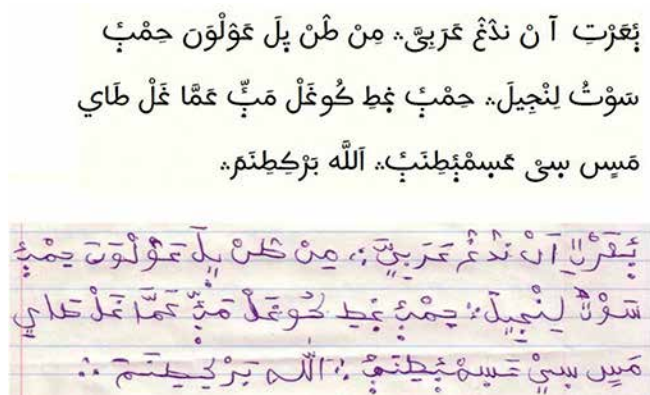 ࢽٜعَرْتِ آ نْ نڎْغْ عَرَبِىَّ؞ مِنْ طَنْ يِلَ عَوْلْوَن حِمْبٜ
سَوْتُ لِنْجِيلَ؞ حِمْبٜ غٜطِ كُوغَلْ مَبّٜ عَمَّا غَلْ طَاي
مَسٜس سِىْ عَسِمْبٜطِنَبٜ؞ اَللَّه بَرْكِطِنَمَ؞
عَرَبِىَّ؞ مِنْ طَنْ يِلَ عَوْلْوَن حِمْبٜ
سَوْتُ لِنْجِيلَ؞ حِمْبٜ غٜطِ كُوغَلْ مَبّٜ عَمَّا غَلْ طَاي
مَسٜس سِيْ عَسِمْبٜطِنَبٜ؞ اَللَّه بَرْكِطِنَمَ؞